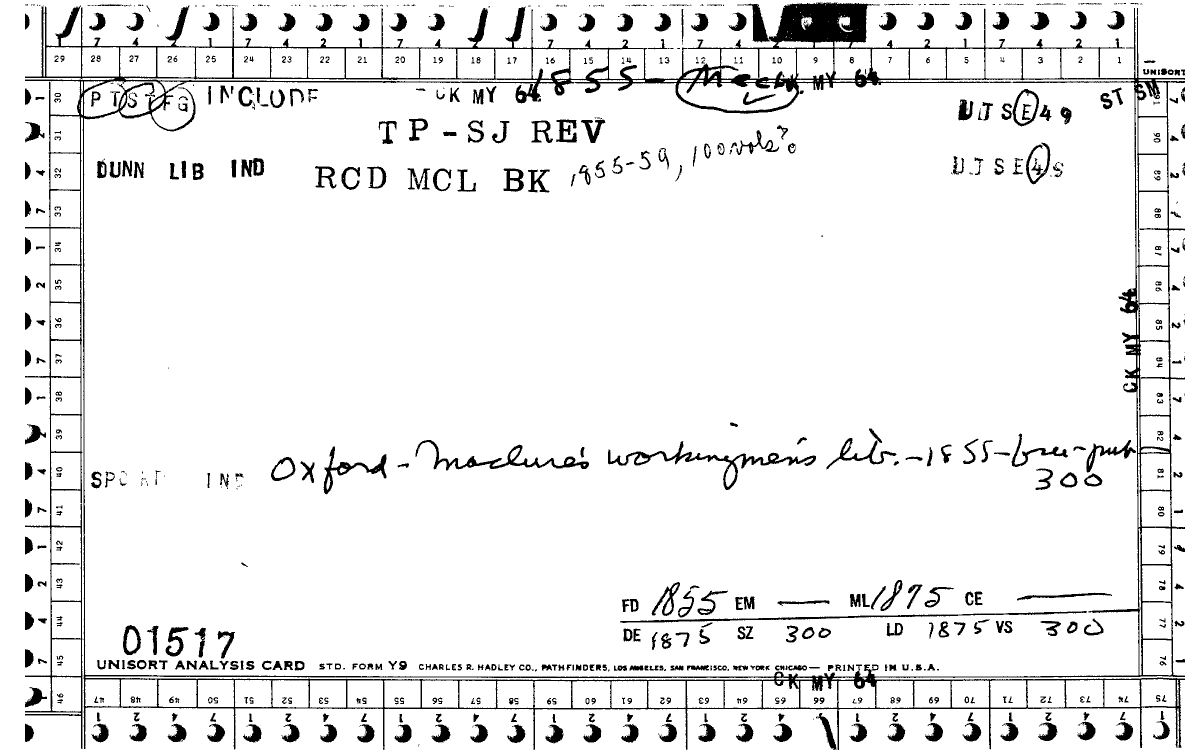 7 4 2 1 7 4 2 1 7 4 2 1 7 4 2 1 7 4 2 1 7 4 2 1
29 28 27 26 25 24 23 22 21 20 19 18 17 16 15 14 13 12 11 10 9 8 7 6 5 4 3 2 1
UNISORT
1855- Mech
PT ST FG INCLUDE - CK MY 64 CK MY 64 UTSE49 ST SM
TP-SJ REV
DUNN LIB IND RCD MCL BK 1855-59, 100 vols? UTSE4S
CK MY 64
SPC IND Oxford - Maclure's workingmen's lib. - 1855 - free - pub
300
FD 1855 EM — ML 1875 CE —
DE 1875 SZ 300 LD 1875 VS 300
01517
UNISORT ANALYSIS CARD STD. FORM Y9 CHARLES R. HADLEY CO., PATHFINDERS, LOS ANGELES, SAN FRANCISCO, NEW YORK CHICAGO — PRINTED IN U.S.A.
CK MY 64
47 48 49 50 51 52 53 54 55 56 57 58 59 60 61 62 63 64 65 66 67 68 69 70 71 72 73 74 75